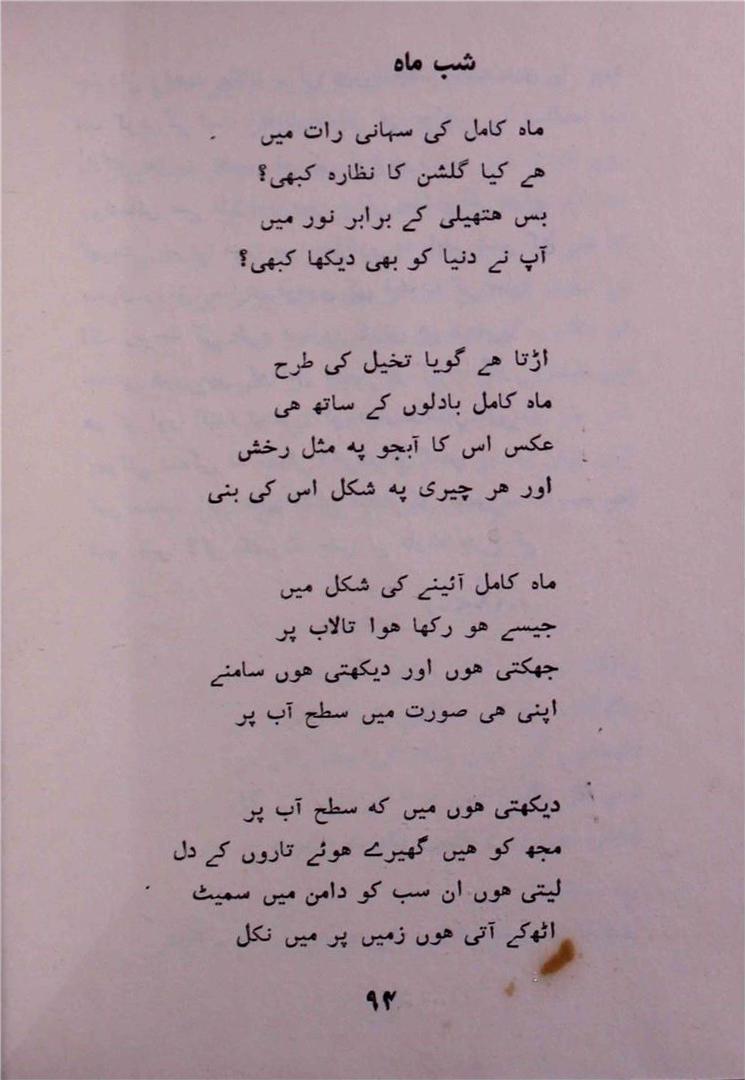 شب ماہ
ماہ کامل کی سہانی رات میں
ھے کیا گلشن کا نظارہ کبھی؟
بس ھتھیلی کے برابر نور میں
آپ نے دنیا کو بھی دیکھا کبھی؟
اڑتا ھے گویا تخیل کی طرح
ماہ کامل بادلوں کے ساتھ ھی
عکس اس کا آبجو پہ مثل رخش
اور ھر چیری پہ شکل اس کی بنی
ماہ کامل آئینے کی شکل میں
جیسے ھو رکھا ھوا تالاب پر
جھکتی ھوں اور دیکھتی ھوں سامنے
اپنی ھی صورت میں سطح آب پر
دیکھتی ھوں میں کہ سطح آب پر
مجھ کو ھیں گھیرے ھوئے تاروں کے دل
لیتی ھوں ان سب کو دامن میں سمیٹ
اٹھکے آتی ھوں زمیں پر میں نکل
۹۴